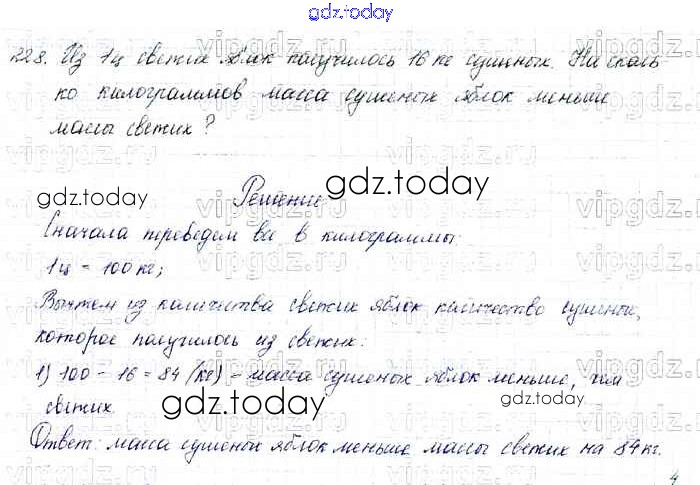 gdz.today
228. Из 1ц свежих яблок получилось 16 кг сушеных. На сколь-
ко килограммов масса сушеных яблок меньше
массы свежих?
gdz.today
gdz.today
Решение
Сначала переведем все в килограммы:
1ц = 100 кг;
Вычтем из количества свежих яблок количество сушеных,
которое получилось из свежих:
1) 100 - 16 = 84 (кг) - масса сушеных яблок меньше, чем
свежих.
gdz.today
gdz.today
Ответ: масса сушеных яблок меньше массы свежих на 84 кг.
4